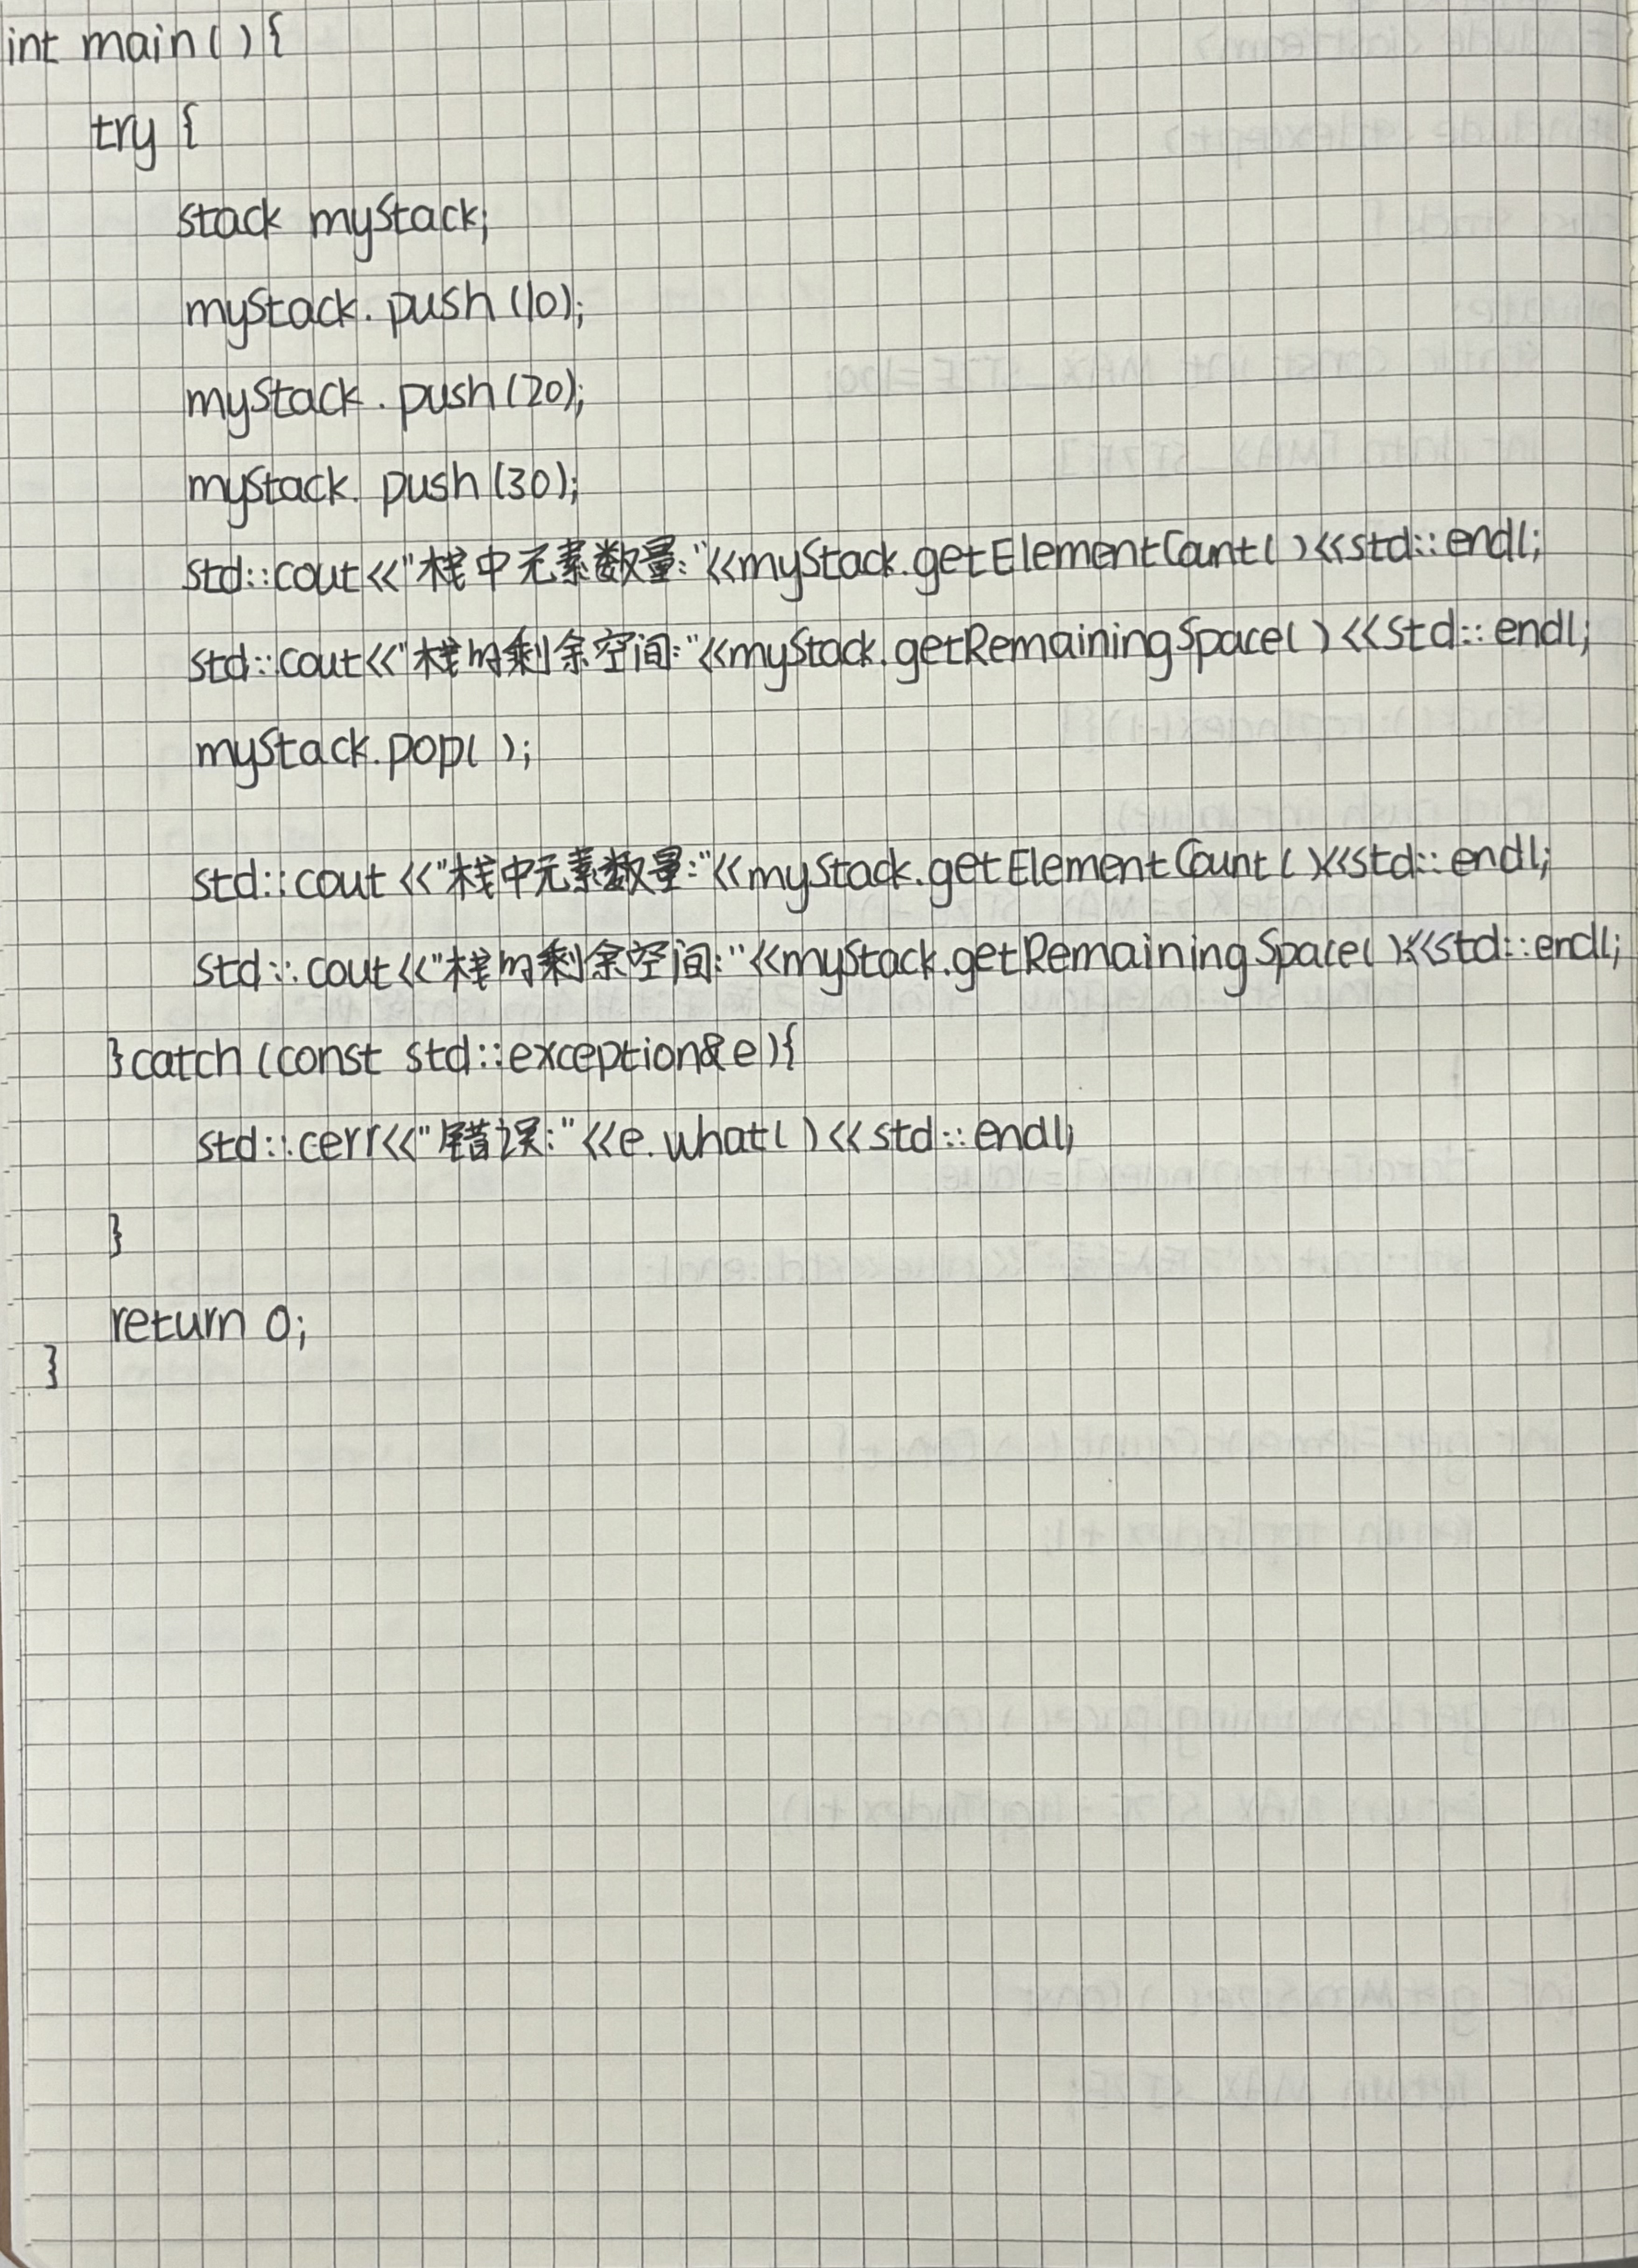 int main(){
try {
stack mystack;
mystack.push(10);
mystack.push(20);
mystack.push(30);
std::cout<<"栈中元素数量:"<<mystack.getElementCount()<<std::endl;
std::cout<<"栈的剩余空间:"<<mystack.getRemainingSpace()<<std::endl;
mystack.pop();
std::cout<<"栈中元素数量:"<<mystack.getElementCount()<<std::endl;
std::cout<<"栈的剩余空间:"<<mystack.getRemainingSpace()<<std::endl;
}catch(const std::exception&e){
std::cerr<<"错误:"<<e.what()<<std::endl;
}
return 0;
}